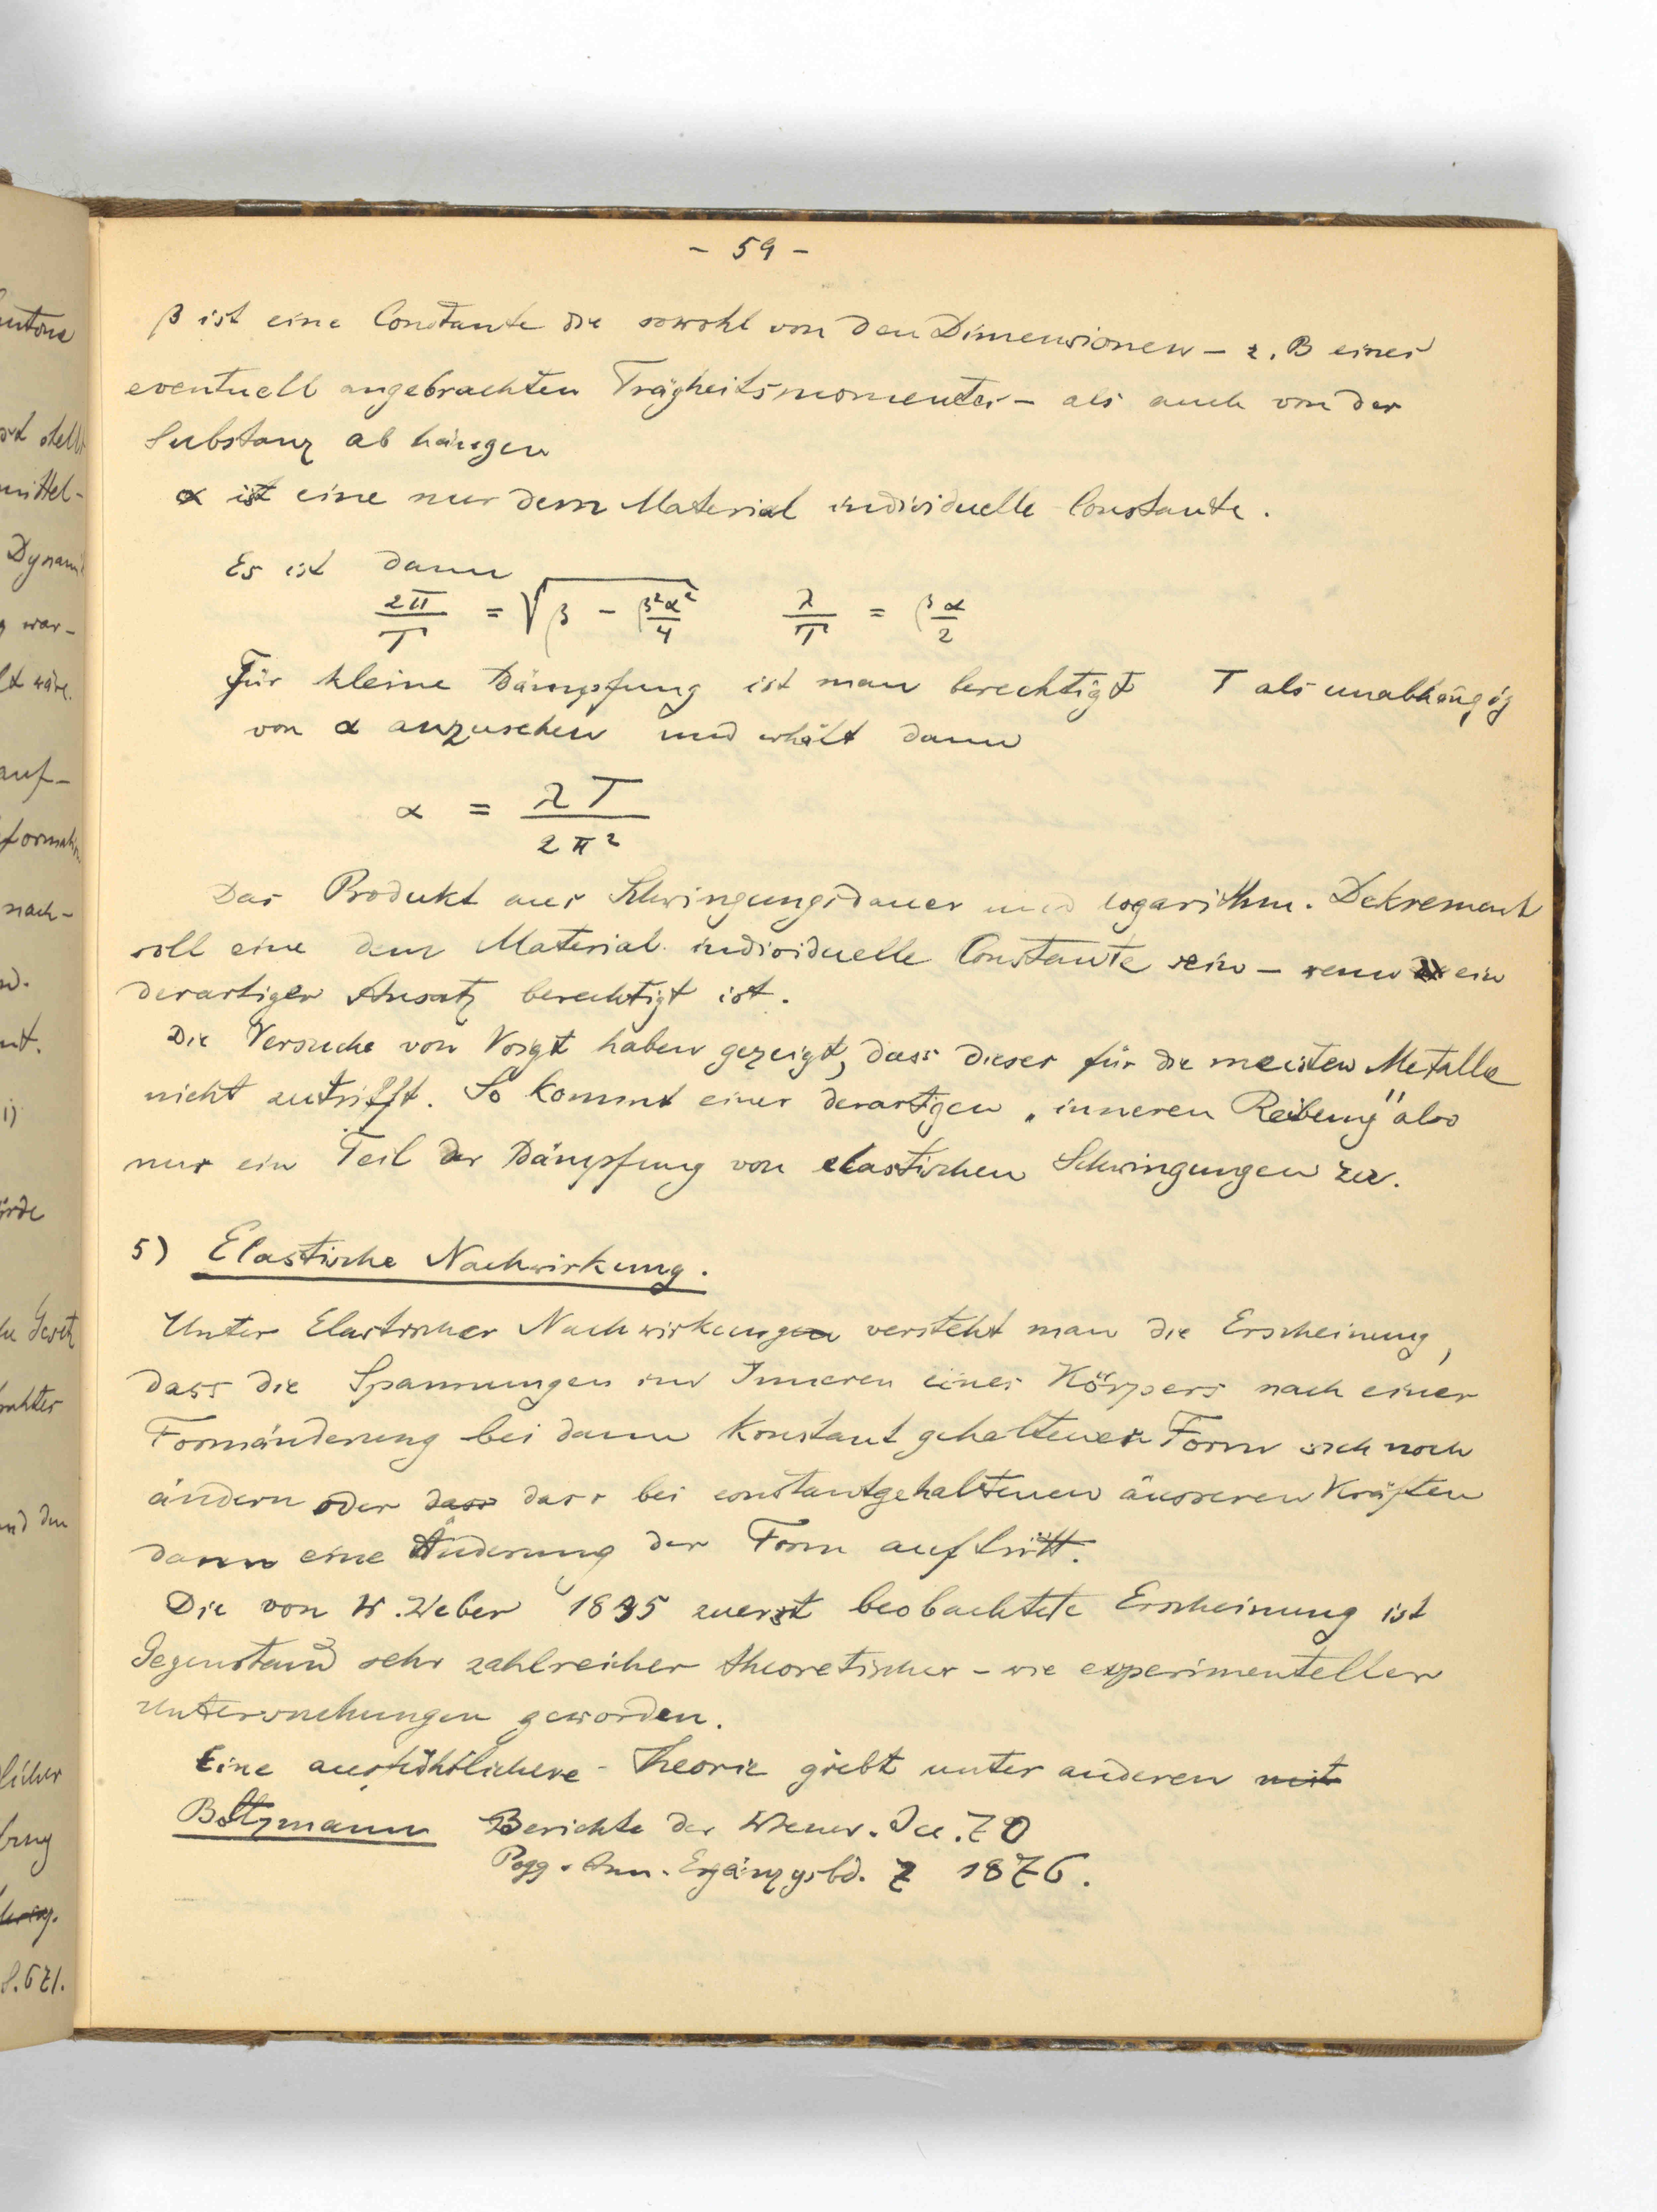 - 59 -
β ist eine Constante die sowohl von den Dimensionen - z. B eines
eventuell angebrachten Trägheitsmomentes - als auch von der
Substanz ab hängen
α ist eine nur dem Material individuelle Constante.
Es ist dann
2π/T = √(β - β²α²/4) λ/T = βα/2
Für kleine Dämpfung ist man berechtigt T als unabhängig
von α anzusehen und erhält dann
α = λT/2π²
Das Produkt aus Schwingungsdauer und logarithm. Dekrement
soll eine dem Material individuelle Constante sein - wenn ein
derartiger Ansatz berechtigt ist.
Die Versuche von Voigt haben gezeigt, dass dieses für die meisten Metalle
nicht zutrifft. So kommt einer derartgen „inneren Reibung" also
nur ein Teil der Dämpfung von elastischen Schwingungen zu.
5) Elastische Nachwirkung.
Unter Elastischer Nachwirkungen versteht man die Erscheinung,
dass die Spannungen im Inneren eines Körpers nach einer
Formänderung bei dann konstant gehaltener Form sich noch
ändern oder dass dass bei constantgehaltenen äusseren Kräften
dann eine Änderung der Form auftritt.
Die von W. Weber 1835 zuerst beobachtete Erscheinung ist
Gegenstand sehr zahlreicher theoretischer - wie experimenteller
Untersuchungen geworden.
Eine ausführlichere Theorie giebt unter anderen mit
Boltzmann Berichte der Wiener. 70
Pogg. Ann. Ergänzgsbd. 7 1876.
mittel-
Dynami
war-
auf-
nach-
S. 671.